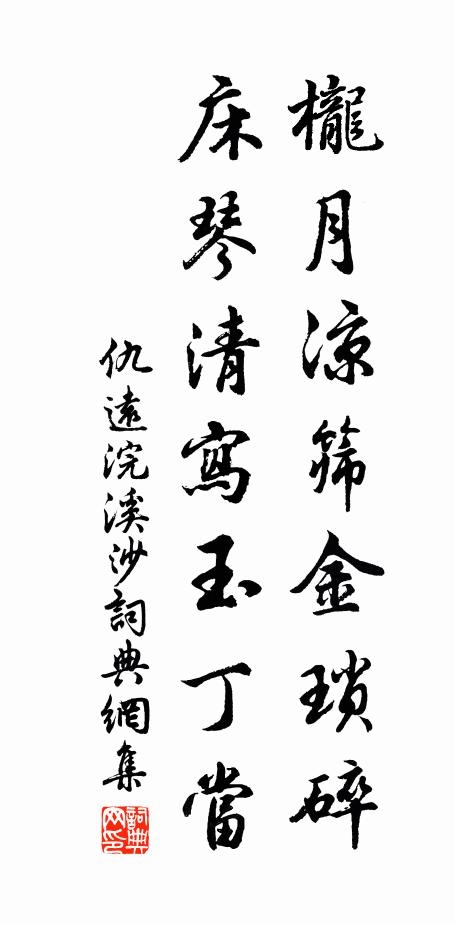 櫳月涼篩金瑣碎
床琴清寫玉丁當
仇遠浣溪沙詞典網集
詞典網印